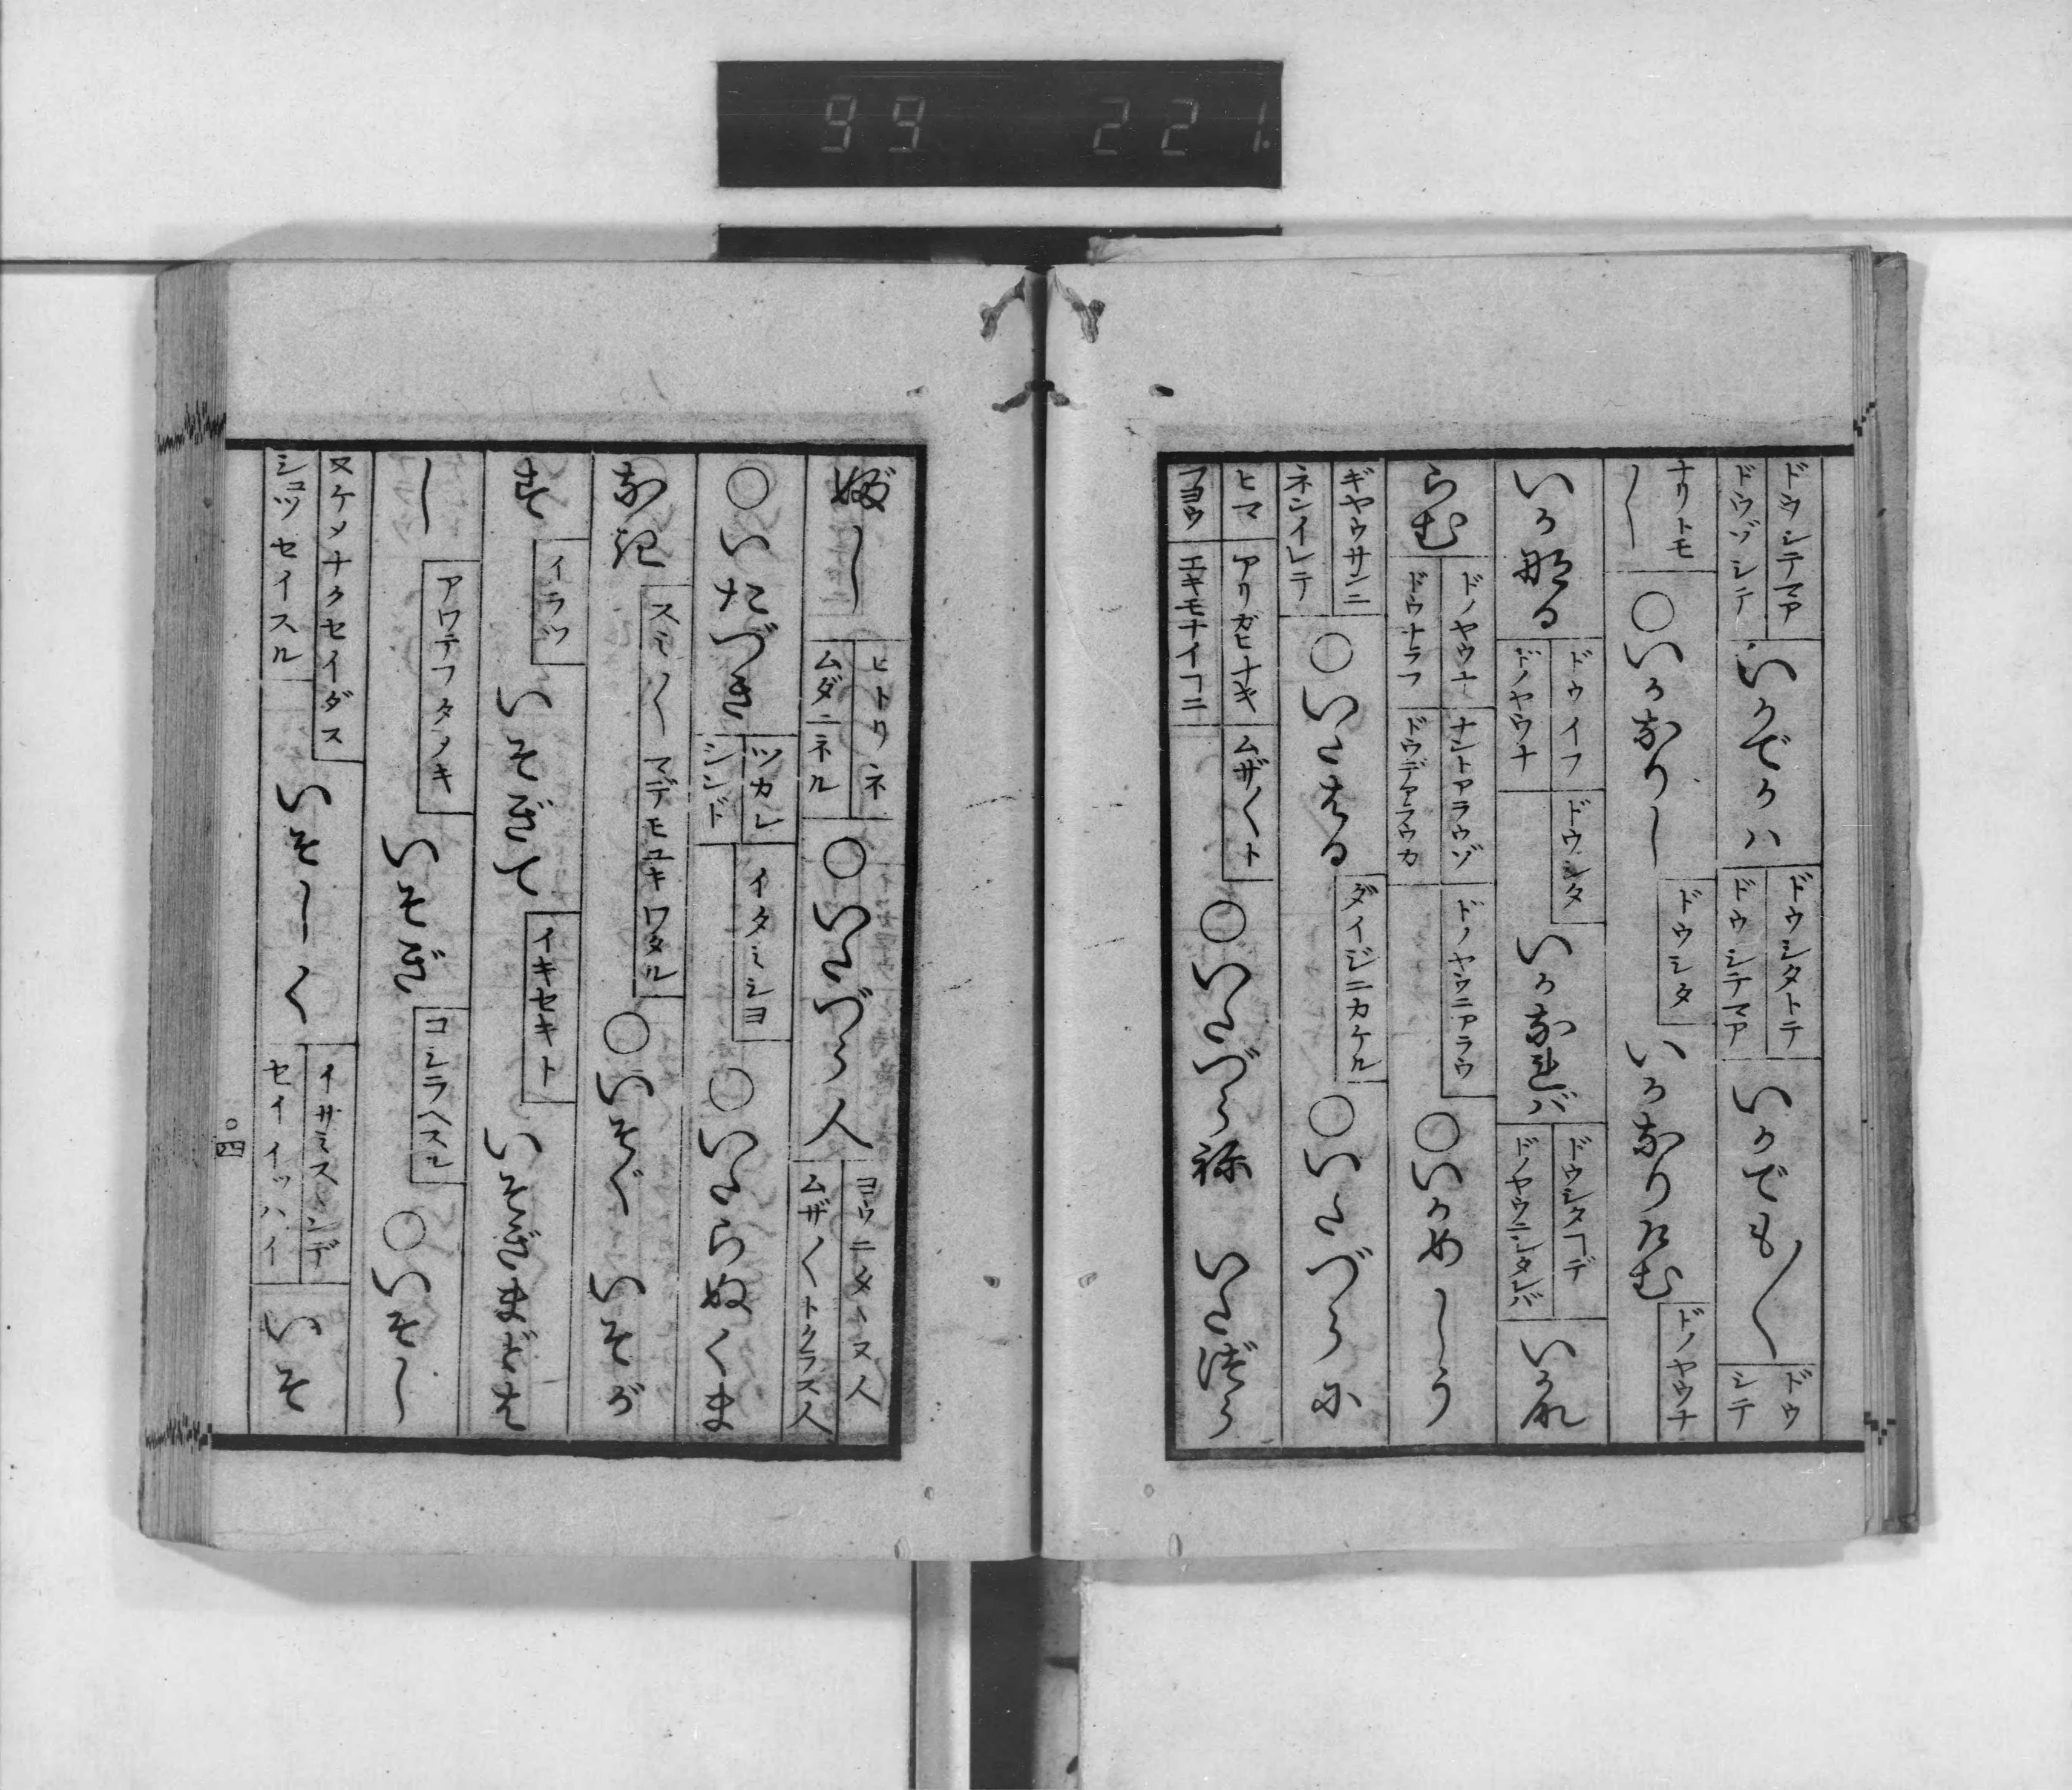 99 221.
ドウシテマア
ドウゾシテ
いかでかハ
ドウシタトテ
ドウシテマア
いかでも〳〵
ドウ
シテ
ナリトモ
〳〵
○いかなりし
ドウシタ
いかなりけむ
ドノヤウナ
いか那る
ドウイフ
ドノヤウナ
ドウシタ
いかなれバ
ドウシタヿデ
ドノヤウニシタレバ
いかな
らむ
ドノヤウナ
ドウトラフ
ナントアラウゾ
ドウデアラウカ
ドノヤウニアラウ
○いかめしう
ギヤウサンニ
ネンイレテ
○いたはる
ダイジニカケル
○いたづらに
ヒマ
フヨウ
アリガヒナキ
エキモナイヿニ
ムザ〳〵ト
○いたづら祢
いたづら
ぶし
ヒトリネ
ムダニネル
○いたづら人
ヨウニタヽヌ人
ムザ〳〵トクラス人
○いたづき
ツカレ
シンド
イタミシヨ
○いたらぬくま
なき
スミ〳〵マデモユキワタル
○いそぐ
いそが
す
イラツ
いそぎて
イキセキト
いそぎまどは
し
アワテフタメキ
いそぎ
コシラヘスル
○いそし
ヌケメナクセイダス
シュツセイスル
いそし〳〵
イサミスヽンデ
セイイッハイ
いそ
○四